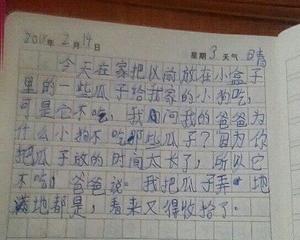 2018年2月14日 星期3天气晴
今天在家把以前放在小盒子
里的一些瓜子给我家的小狗吃,
可是它不吃,我问我的爸爸为
什么小狗不吃那些瓜子?因为你
把瓜子放的时间太长了,所以它
不吃。爸爸说 我把瓜子弄 地
满地都是,看来又得收拾了。